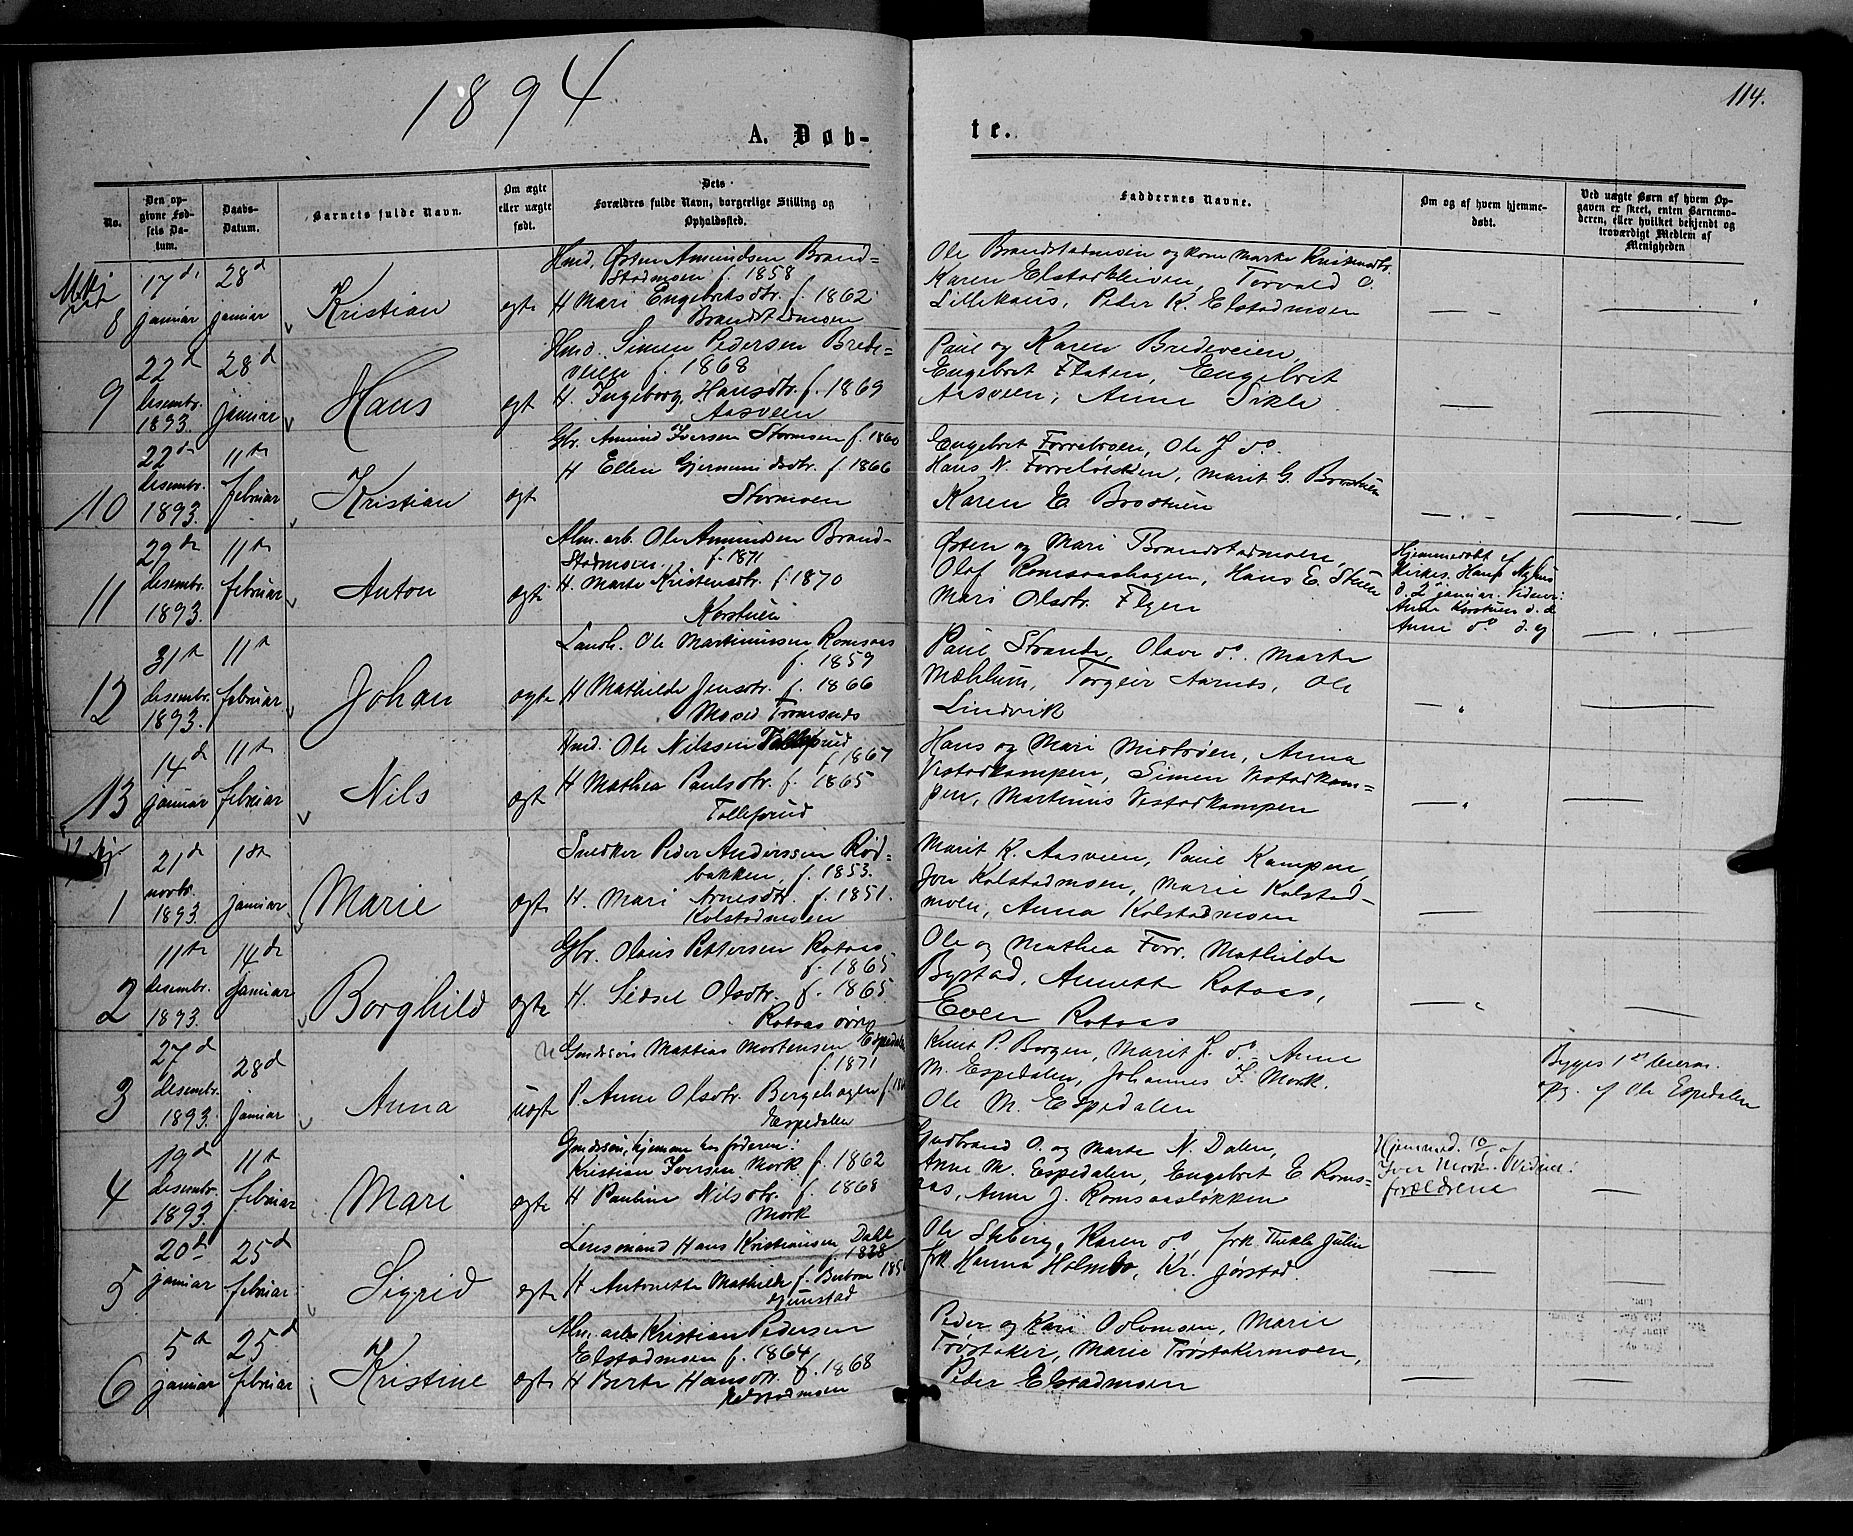 1894
114.
A. Døb-
te.
No.
Den op-
givne Fød-
sels Da-
tum.
Daabs-
Datum.
Barnets fulde Navn.
Om ægte
eller uægte
født.
Dets
Forældres fulde Navn, borgerlige Stilling og
Opholdssted.
Faddernes Navne.
Om og af hvem hjemme-
døbt.
Ved uægte Børn af hvem Op-
gaven er skeet, enten Barnemo-
deren, eller hvilket bekjendt og
troværdigt Medlem af
Menigheden
8
17de
januar
28d
januar
Kristian
ægte
Hmd. Østen Amundsen Brand-
stadmoen f. 1858
H Mari Engebretsdtr. f. 1862
Brandstadmoen
Ole Brandstadmoen og kone Marte Kristensdtr.
Karen Elstadkleiven, Torvald O.
Lillehaus, Peder K. Elstadmoen
9
22d
desembr.
1893.
28d
januar
Hans
ægt
Hmd. Simen Pedersen Brede-
veien f. 1868
H. Ingeborg Hansdtr. f. 1869
Aasveen
Paul og Karen Bredeveien,
Engebret Flaten, Engebret
Aasveen, Anne Sikle.
10
22de
desembr.
1893.
11te
februar
Kristian
ægt
Gbr. Amund Iversen Stormoen f. 1860
H Ellen Gjermundsdtr. f. 1866
Stormoen
Engebret Forrebroen, Ole J do.
Hans N. Marit G. Brostuen
Karen E. Brostuen
11
29de
desembr.
1893.
11te
februar
Anton
ægte
Alm. arb. Ole Amundsen Brand-
stadmoen, f. 1871
H. Marte Kristensdtr. f. 1870
Korstuen
Østen og Mari Brandstadmoen,
Olaf Romsaashagen, Hans E. Stuen
Mari Olsdtr. Flyen
Hjemmedøbt af
Kirkes. Hans Nyhus
d. 2 januar. Vidner:
Anne Korstuen d. æ
Anne do d. y
12
31te
desembr.
1893.
11te
februar
Johan
ægte
Landh. Ole Martinussen Romsaas
f. 1859
H Mathilde Jensdtr. f. 1866
Tromsnes
Paul Strande, Olava do. Marte
Mæhlum, Torgeir Aarnes, Ole
Lindvik
13
14d
januar
11te
februar
Nils
ægte
Hmd. Ole Nilssen Tollefsrud
f 1867
H Mathea Paulsdtr. f. 1865
Tollefsrud
Hans og Mari Mobroen, Anna
Vestadkampen, Simen Vestadkam-
pen, Martinus Vestadkampen
1
21de
novbr.
1893.
1ste
januar
Marie
ægte
Snedker Peder Anderssen Rød-
bakken, f. 1853.
H. Mari Arnesdtr. f. 1851.
Kolstadmoen
Marit K. Aasveen, Paul Kampen,
Jon Kolstadmoen, Marie Kolstad-
moen, Anna Kolstadmoen
2
11te
desembr.
1893.
14de
januar
Borghild
ægte
Gbr. Olaus Pettersen Rotaas
f. 1865
H. Sidsel Olsdtr. f. 1865
Rotaas øvre
Ole og Mathea Forr. Mathilde
Bystad, Annette Rotaas,
Even Rotaas
3
27d
desembr.
1893.
28d
januar
Anna
uægte
Gmdssøn Mattias Mortensen Espedalen
f. 1871
P. Anne Olsdtr. Bergehagen
Espedalen
Knut P. Borgen, Marit J. do. Anne
M. Espedalen, Johannes I. Mork.
Ole M. Espedalen
Bygges 1ste leierm.
opg. af Ole Espedalen
4
19d
desembr.
1893.
11te
februar
Mari
ægte
Gmdssøn, hjemme hos faderen:
Kristian Iversen Mork f. 1862
H Pauline Nilsdtr. f. 1868
Mork
Gudbrand O. og Marte N. Dalen,
Anne M. Espedalen, Engebret E. Roms-
aas, Anne J. Romsaasløkken
Hjemmed. 10/1 af
Iver Mork. Vidne:
forældrene
5
20d
januar
25d
februar
Sigrid
ægte
Lensmand Hans Kristiansen Dahl
f. 1838
H Antonette Mathilde f.
Gunstad
Ole Stiberg, Karen do frk. Thekla Julin
frk. Hanna Holmbo, Kr. Jørstad.
6
5te
januar
25d
februar
Kristine
ægte
Alm. arb. Kristian Pedersen
Elstadmoen f. 1864
H Berte Hansdtr. f. 1868
Elstadmoen
Peder og Kari Odlomoen, Marie
Trøstaker, Marie Trøstakermoen,
Peder Elstadmoen